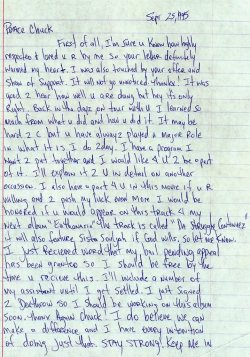 Sept 25, 1995
Peace Chuck
First of all, I'm sure u know how highly
respected & loved u R by me so your letter definitely
warmed my heart. I was also touched by your offer and
show of support. It will not go unnoticed thanks. It was
good 2 hear how well u are doing but hey its only
Right. Back in the dayz on tour with U I learned so
much from what u did and how u did it. It may be
hard 2 C but u have alwayz played a Major Role
in what it is I do 2day. I have a program I
Want 2 put together and I would like 4 U 2 be a part
of it. I'll explain it 2 U in detail on another
occasion. I also have a part 4 U in this movie if u R
willing and 2 push my luck even More I would be
honored if u would appear on this track 4 my
next album "Euthanasia" The track is called "Da Struggle Continuez"
it will also feature Sista Souljah if God wills. So let me know.
I just Recieved word that my bail pending appeal
has been granted So I should be free by the
time u recieve this. I'll include a number of
my assistant until I get settled. I just signed
2 Deathrow so I should be working on this album
soon. thanx Again Chuck! I do believe we can
make a difference and I have every intention
of doing just that. STAY STRONG! Keep me in